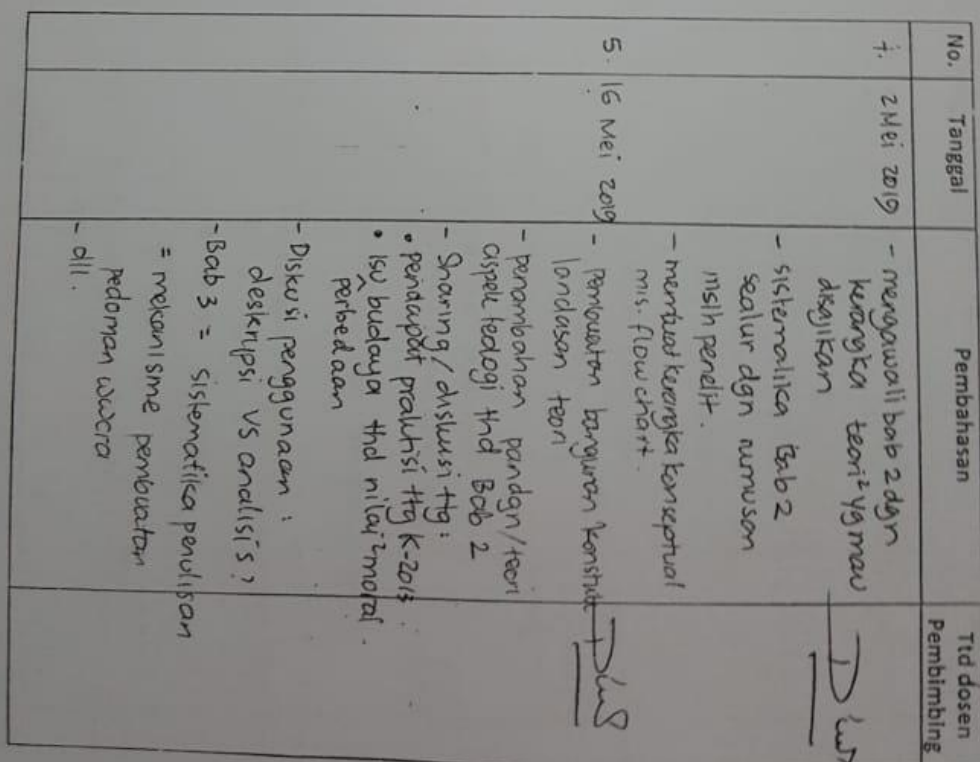 No. Tanggal Pembahasan Ttd dosen
Pembimbing
2 Mei 2019 - mengawali bab 2 dgn
kerangka teori² yg mau
disajikan
- sistematika Bab 2
sealur dgn rumusan
mslh penelit.
- membuat kerangka konseptual
mis. flow chart.
5. 16 Mei 2019 - pembuatan bangunan konstruk
landasan teori
- penambahan pandgn/teori
aspek teologi thd Bab 2
- Sharing/diskusi ttg:
• pendapat praktisi ttg K-2013
• isu budaya thd nilai² moral.
perbedaan
- Diskusi penggunaan:
deskripsi vs analisis?
- Bab 3 = sistematika penulisan
= mekanisme pembuatan
pedoman wwcra
- dll.